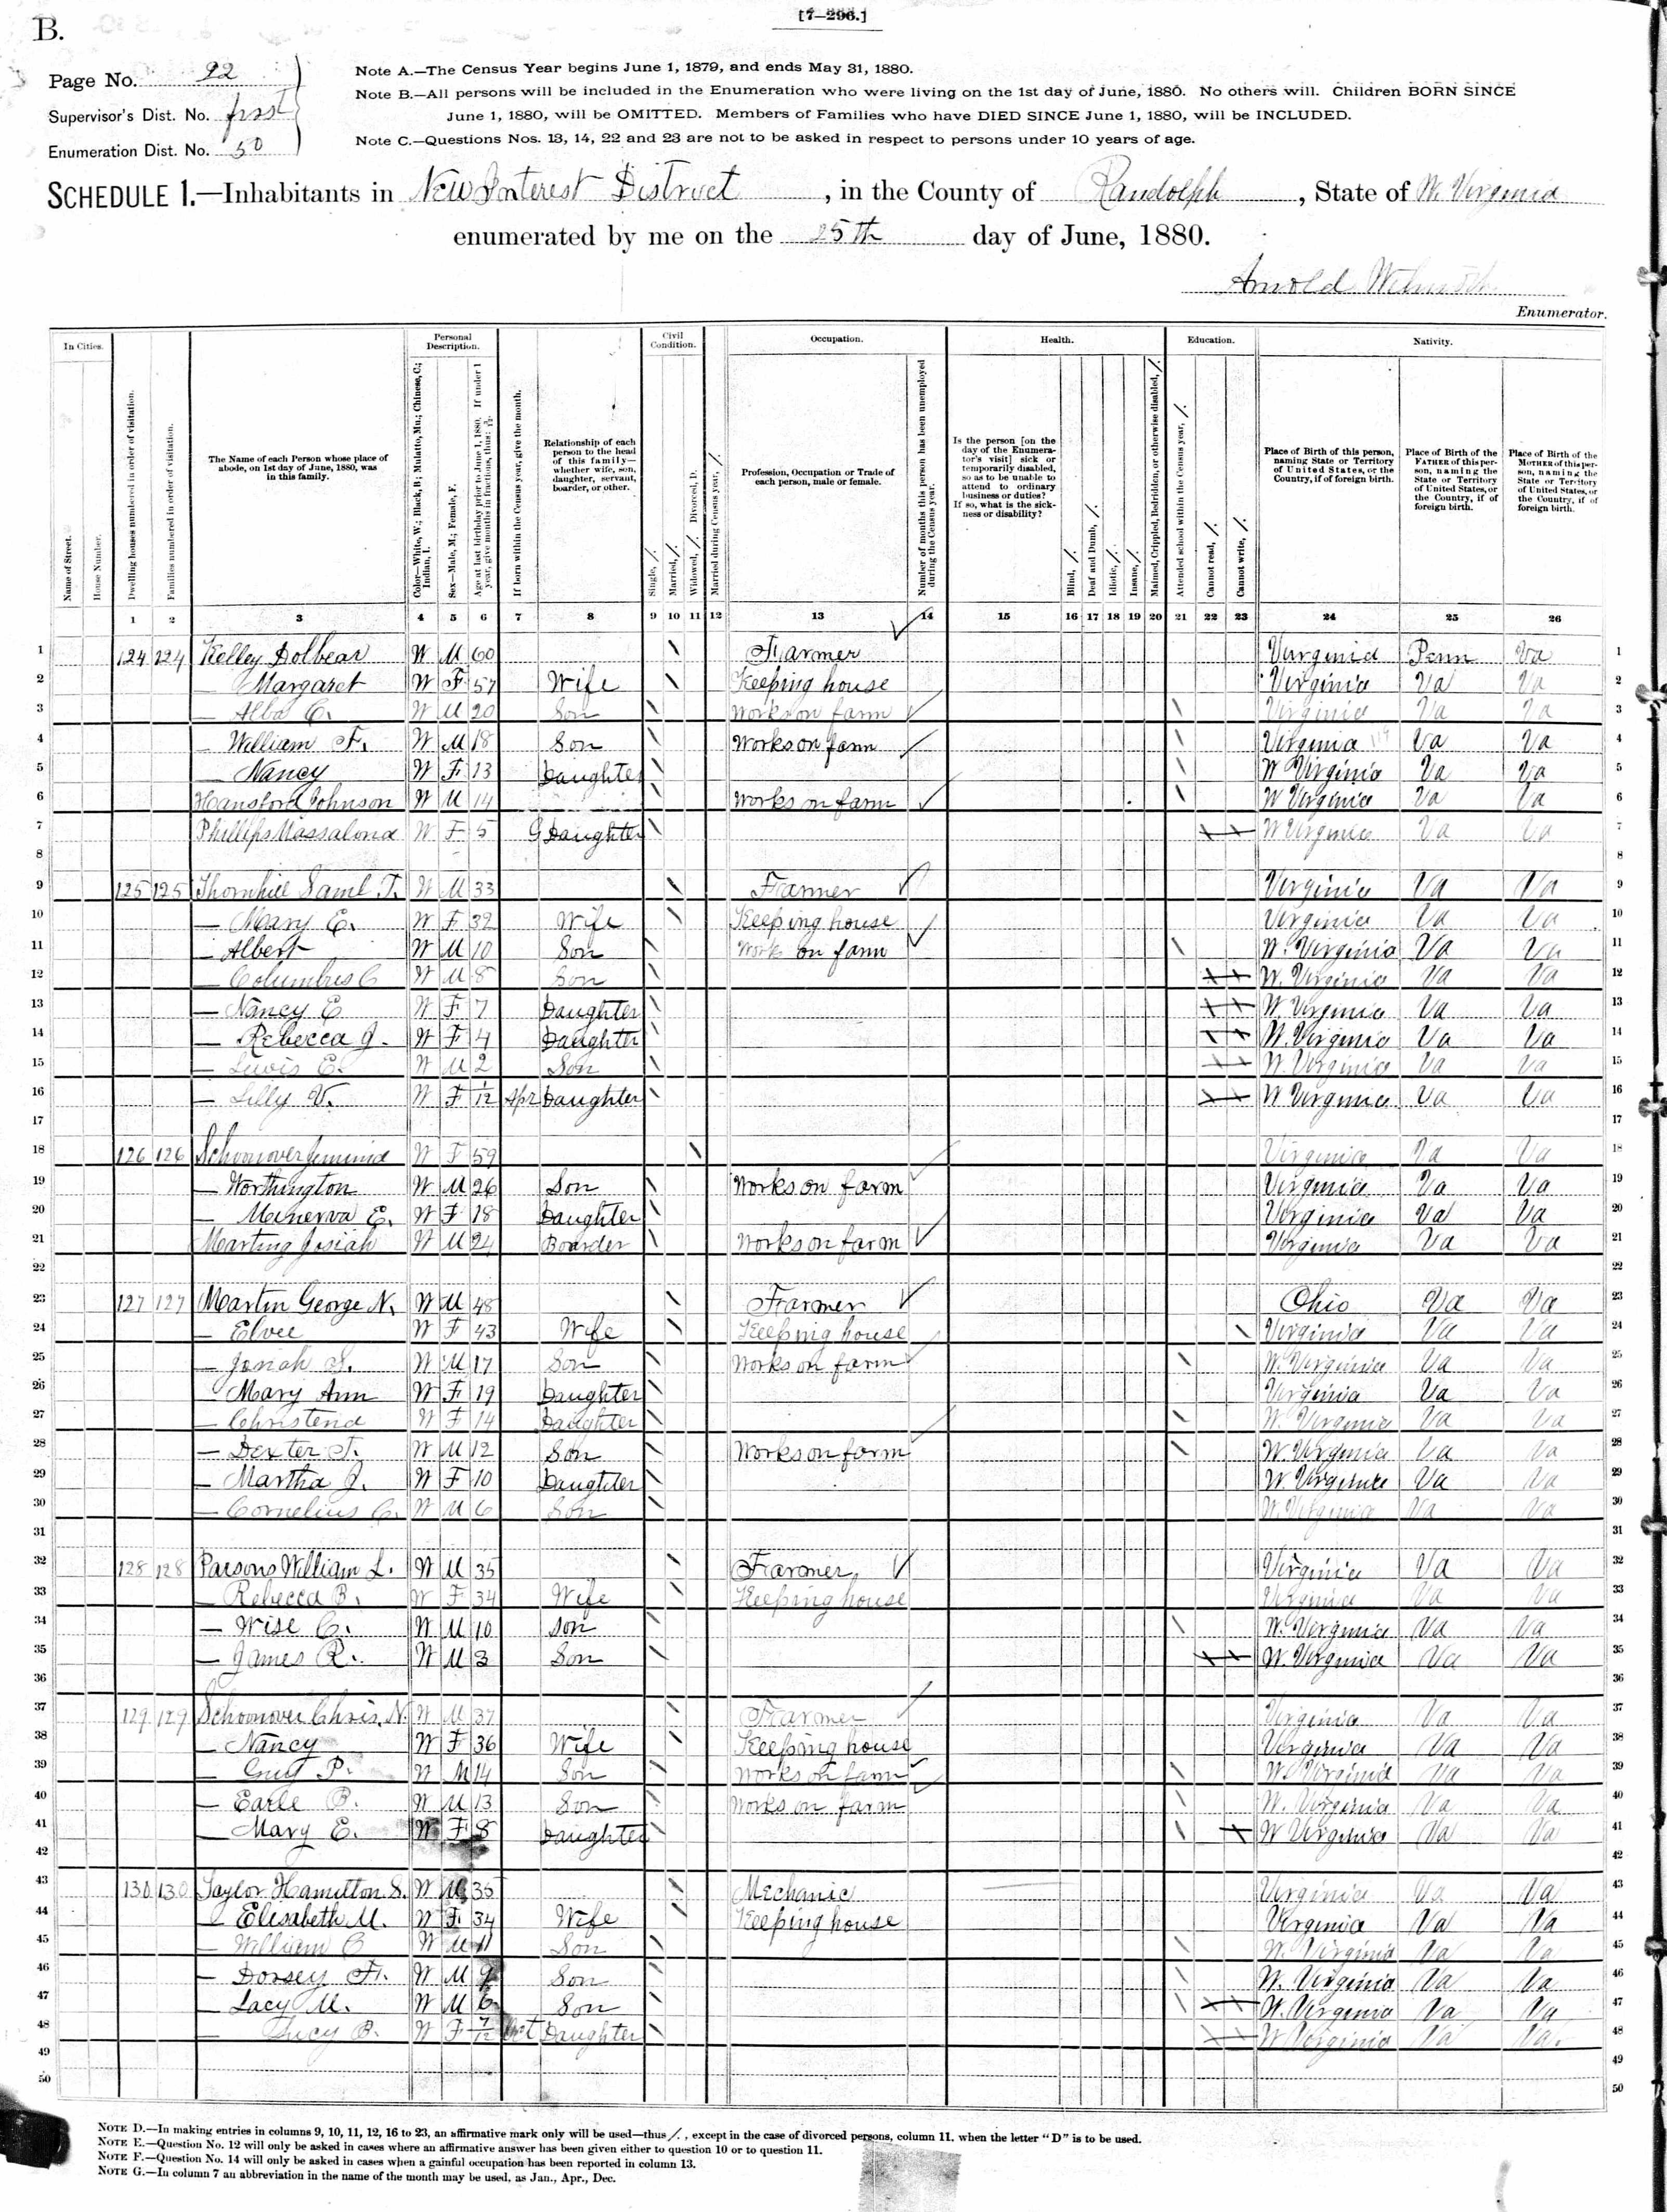 B.
[7—296.]
Page No. 22
Supervisor's Dist. No. first
Enumeration Dist. No. 50
Note A.—The Census Year begins June 1, 1879, and ends May 31, 1880.
Note B.—All persons will be included in the Enumeration who were living on the 1st day of June, 1880. No others will. Children BORN SINCE
June 1, 1880, will be OMITTED. Members of Families who have DIED SINCE June 1, 1880, will be INCLUDED.
Note C.—Questions Nos. 13, 14, 22 and 23 are not to be asked in respect to persons under 10 years of age.
SCHEDULE 1.—Inhabitants in New Interest District, in the County of Randolph, State of W. Virginia
enumerated by me on the 25th day of June, 1880.
Arnold
Enumerator.
In Cities. Personal Description. Civil Condition. Occupation. Health. Education. Nativity.
Name of Street.
House Number.
Dwelling houses numbered in order of visitation.
Families numbered in order of visitation.
The Name of each Person whose place of abode, on 1st day of June, 1880, was in this family.
Color—White, W.; Black, B.; Mulatto, Mu.; Chinese, C.; Indian, I.
Sex—Male, M.; Female, F.
Age at last birthday prior to June 1, 1880. If under 1 year, give months in fractions, thus: 3/12.
If born within the Census year, give the month.
Relationship of each person to the head of this family—whether wife, son, daughter, servant, boarder, or other.
Single, /.
Married, /.
Widowed, /. Divorced, D.
Married during Census year, /.
Profession, Occupation or Trade of each person, male or female.
Number of months this person has been unemployed during the Census year.
Is the person [on the day of the Enumerator's visit] sick or temporarily disabled, so as to be unable to attend to ordinary business or duties? If so, what is the sickness or disability?
Blind, /.
Deaf and Dumb, /.
Idiotic, /.
Insane, /.
Maimed, Crippled, Bedridden, or otherwise disabled, /.
Attended school within the Census year, /.
Cannot read, /.
Cannot write, /.
Place of Birth of this person, naming State or Territory of United States, or the Country, if of foreign birth.
Place of Birth of the FATHER of this person, naming the State or Territory of United States, or the Country, if of foreign birth.
Place of Birth of the MOTHER of this person, naming the State or Territory of United States, or the Country, if of foreign birth.
1 2 3 4 5 6 7 8 9 10 11 12 13 14 15 16 17 18 19 20 21 22 23 24 25 26
1 124 124 Kelley Dolbear W M 60 \ Farmer Virginia Penn Va 1
2 — Margaret W F 57 Wife \ Keeping house Virginia Va Va 2
3 — Alba C. W M 20 Son \ Works on farm \ Virginia Va Va 3
4 — William F. W M 18 Son \ Works on farm \ Virginia Va Va 4
5 — Nancy W F 13 Daughter \ \ W Virginia Va Va 5
6 Hansford Johnson W M 14 \ Works on farm \ W Virginia Va Va 6
7 Phillips Massalona W F 5 G Daughter \ W Virginia Va Va 7
8 8
9 125 125 Thornhill Saml T. W M 33 \ Farmer Virginia Va Va 9
10 — Mary E. W F 32 Wife \ Keeping house Virginia Va Va 10
11 — Albert W M 10 Son \ Work on farm \ W. Virginia Va Va 11
12 — Columbus C W M 8 Son \ W. Virginia Va Va 12
13 — Nancy E W F 7 Daughter \ W. Virginia Va Va 13
14 — Rebecca J. W F 4 Daughter \ W. Virginia Va Va 14
15 — Lewis E. W M 2 Son \ W. Virginia Va Va 15
16 — Lilly V. W F 1/12 Apr Daughter \ W Virginia Va Va 16
17 17
18 126 126 Schoonover Jemima W F 59 \ Virginia Va Va 18
19 — Worthington W M 26 Son \ Works on farm Virginia Va Va 19
20 — Minerva E. W F 18 Daughter \ Virginia Va Va 20
21 Josiah W M 24 Boarder \ Works on farm Virginia Va Va 21
22 22
23 127 127 Martin George N. W M 48 \ Farmer Ohio Va Va 23
24 — Elvee W F 43 Wife \ Keeping house \ Virginia Va Va 24
25 — Josiah S. W M 17 Son \ Works on farm \ W. Virginia Va Va 25
26 — Mary Ann W F 19 Daughter \ Virginia Va Va 26
27 — Christena W F 14 Daughter \ \ W. Virginia Va Va 27
28 — Dexter T. W M 12 Son \ Works on farm \ W. Virginia Va Va 28
29 — Martha J. W F 10 Daughter \ W. Virginia Va Va 29
30 — Cornelius C. W M 6 Son \ W. Virginia Va Va 30
31 31
32 128 128 Parsons William L. W M 35 \ Farmer Virginia Va Va 32
33 — Rebecca B. W F 34 Wife \ Keeping house Virginia Va Va 33
34 — Wise C. W M 10 Son \ \ W. Virginia Va Va 34
35 — James R. W M 3 Son \ W. Virginia Va Va 35
36 36
37 129 129 Schoonover Chris. N. W M 37 \ Farmer Virginia Va Va 37
38 — Nancy W F 36 Wife \ Keeping house Virginia Va Va 38
39 — Guy P. W M 14 Son \ Works on farm \ W. Virginia Va Va 39
40 — Earle B. W M 13 Son \ Works on farm \ W. Virginia Va Va 40
41 — Mary E. W F 8 Daughter \ \ W Virginia Va Va 41
42 42
43 130 130 Taylor Hamilton S. W M 35 \ Mechanic Virginia Va Va 43
44 — Elisabeth M. W F. 34 Wife \ Keeping house Virginia Va Va 44
45 — William C W M 11 Son \ \ W. Virginia Va Va 45
46 — Dorsey F. W M 9 Son \ \ W. Virginia Va Va 46
47 — Lacy M. W M 6 Son \ \ W. Virginia Va Va 47
48 — Lucy B. W F 7/12 Oct Daughter \ W Virginia Va Va. 48
49 49
50 50
NOTE D.—In making entries in columns 9, 10, 11, 12, 16 to 23, an affirmative mark only will be used—thus /. , except in the case of divorced persons, column 11, when the letter "D" is to be used.
NOTE E.—Question No. 12 will only be asked in cases where an affirmative answer has been given either to question 10 or to question 11.
NOTE F.—Question No. 14 will only be asked in cases when a gainful occupation has been reported in column 13.
NOTE G.—In column 7 an abbreviation in the name of the month may be used, as Jan., Apr., Dec.